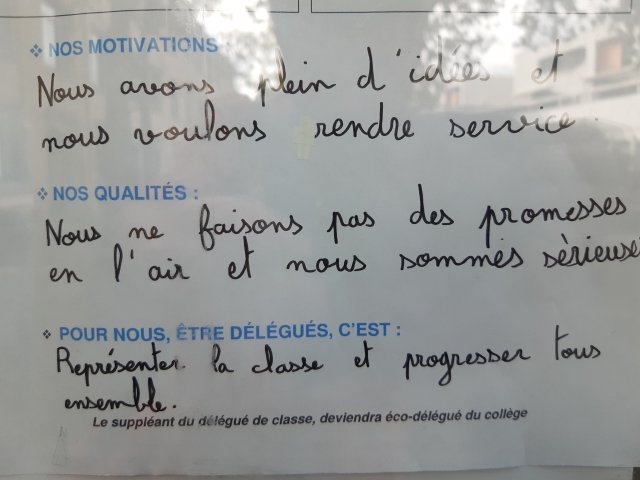 ❖ NOS MOTIVATIONS :
Nous avons plein d'idées et
nous voulons rendre service.
❖ NOS QUALITÉS :
Nous ne faisons pas des promesses
en l'air et nous sommes sérieuse
❖ POUR NOUS, ÊTRE DÉLÉGUÉS, C'EST :
Représenter la classe et progresser tous
ensemble.
Le suppléant du délégué de classe, deviendra éco-délégué du collège